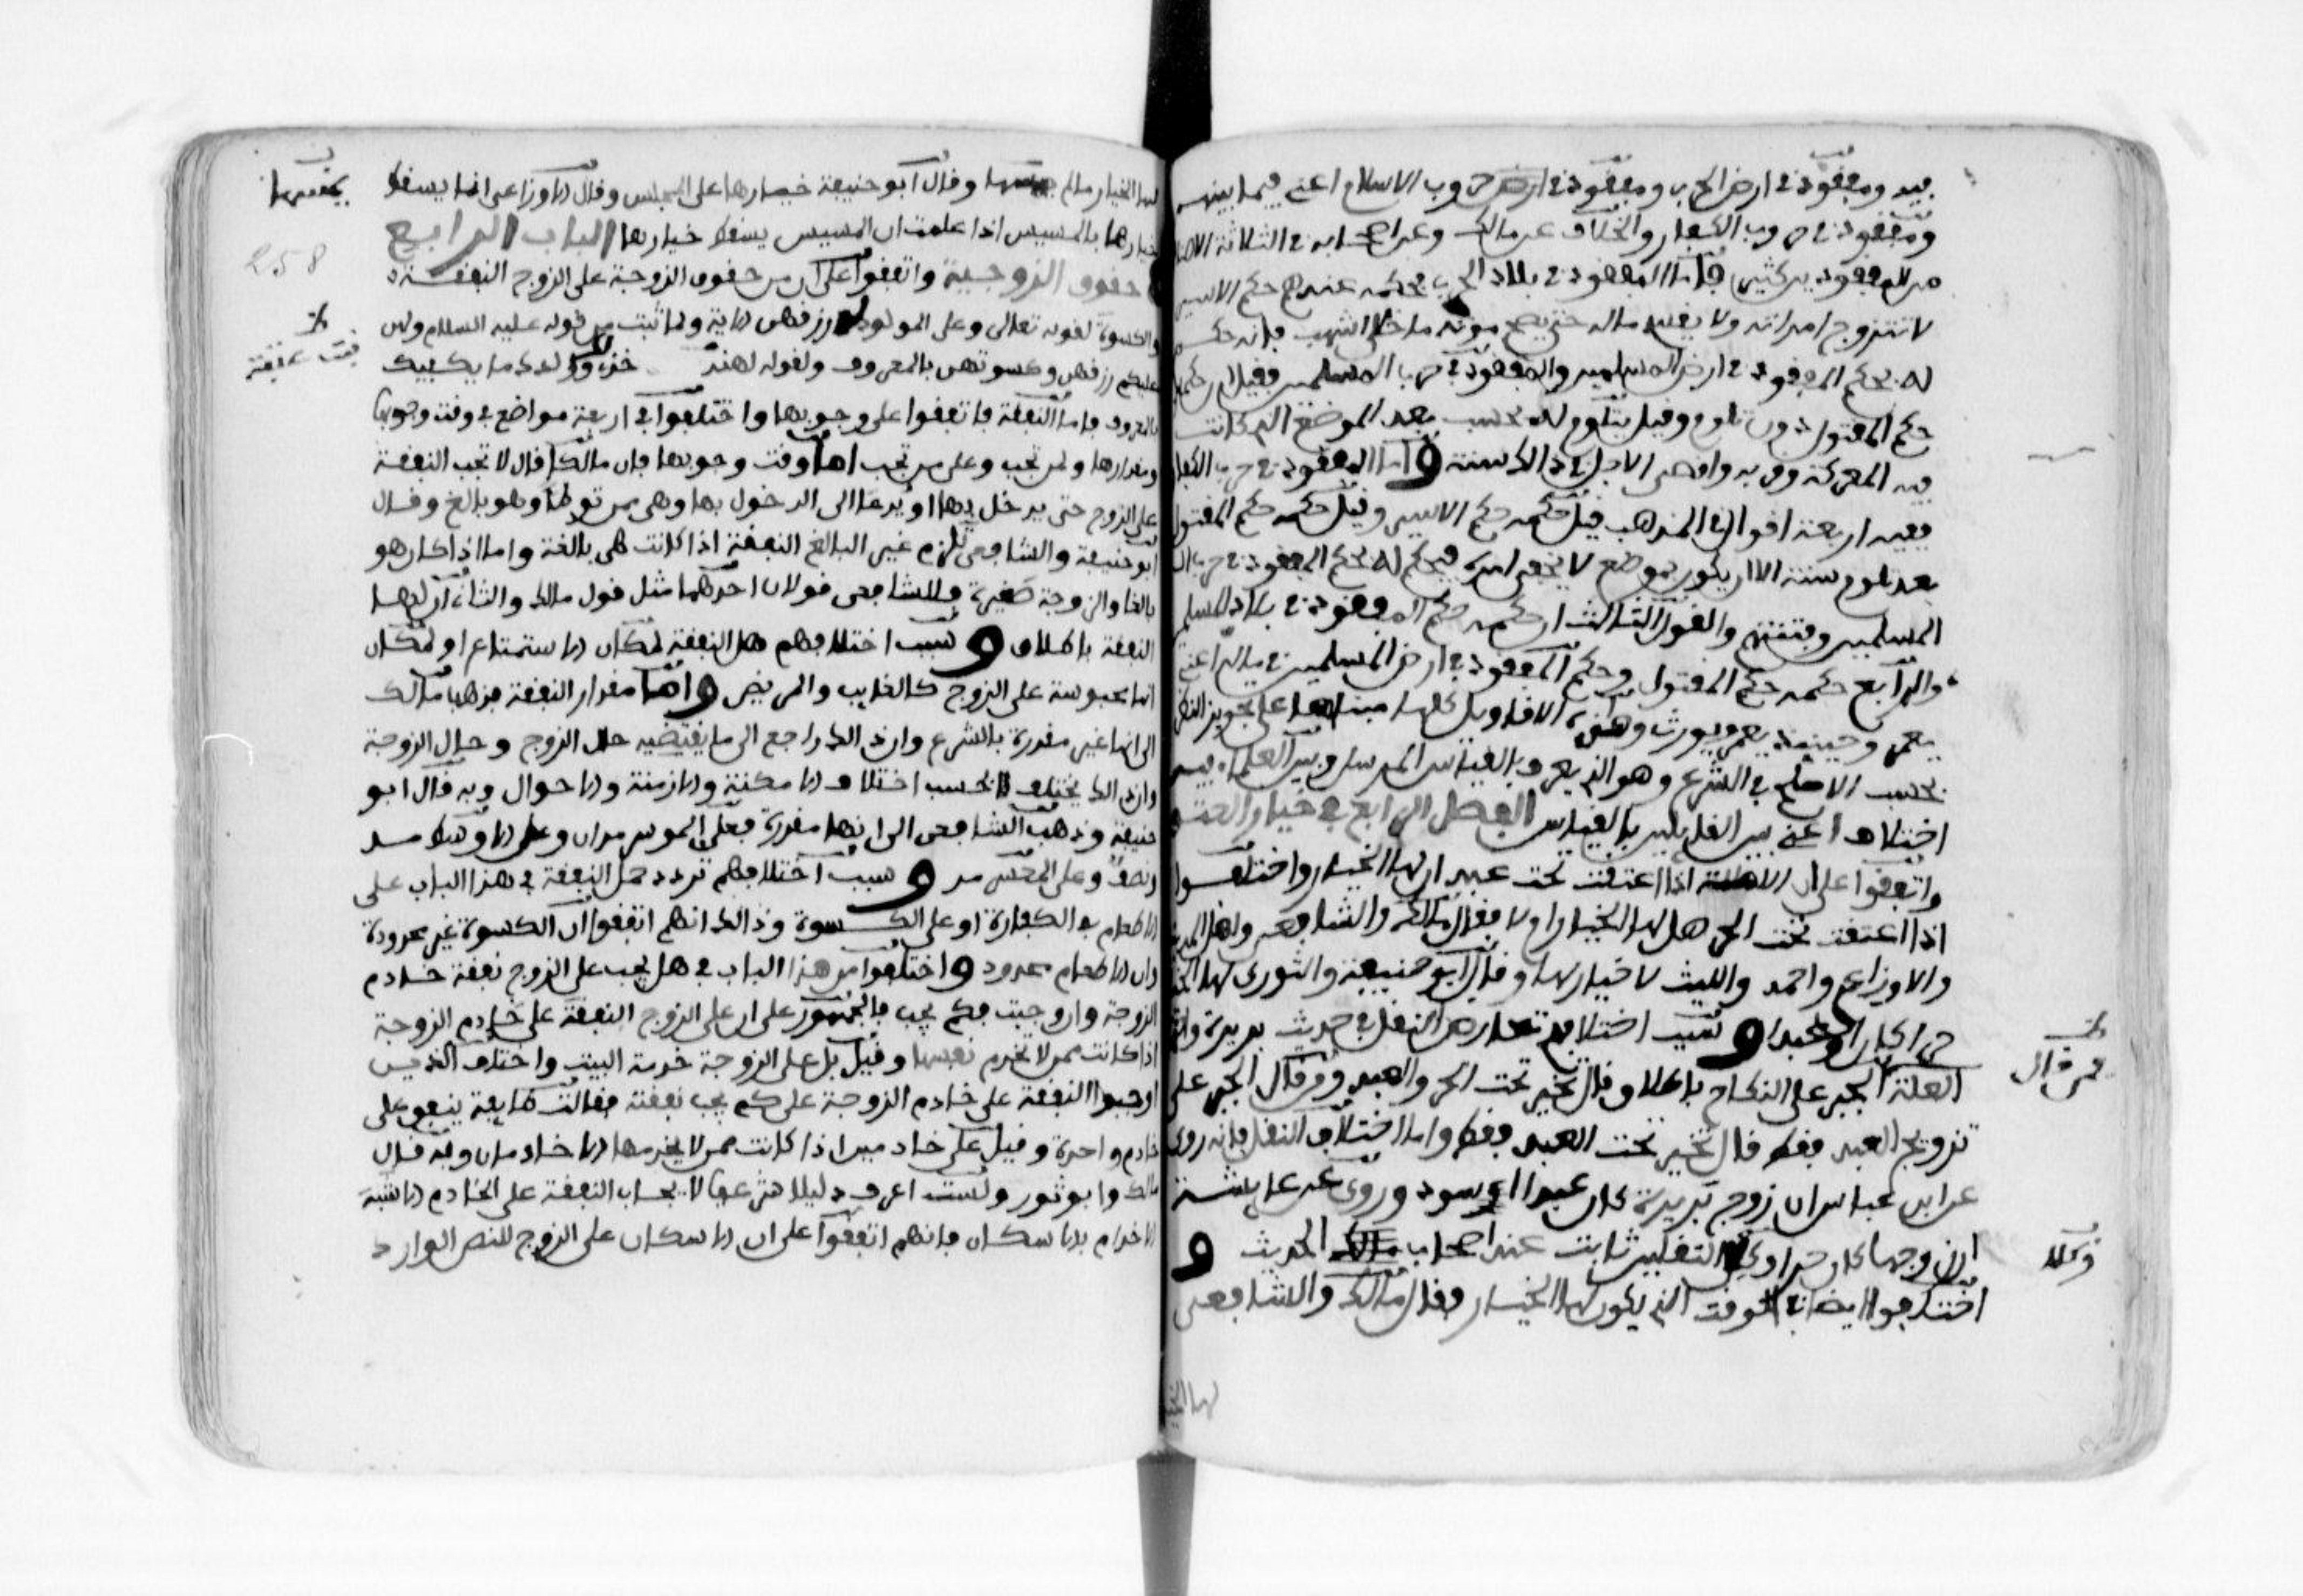 فيه ومفقود في ارض الحرب ومفقود في ارض حروب الاسلام اعني فيما بينهم
ومفقود في حروب الكفار والخلاف عن مالك وعن اصحابه في الثلاثة الاصناف
من المفقودين كثير فاما المفقود في بلاد الحرب فحكمه عندهم حكم الاسير
لا تتزوج امراته ولا يقسم ماله حتى يصح موته ما خلا اشهب فانه حكم
له بحكم المفقود في ارض المسلمين والمفقود في حرب المسلمين فقيل ان حكمه
حكم المقتول دون تلوم وقيل يتلوم له بحسب بعد الموضع الذي كانت
فيه المعركة وقربه واقصى الاجل في ذلك سنة واما المفقود في حرب الكفار
ففيه اربعة اقوال في المذهب قيل حكمه حكم الاسير وقيل حكمه حكم المقتول
بعد تلوم سنة الا ان يكون بموضع لا يخفى امره فيحكم له بحكم المفقود في حرب
المسلمين وفتنتهم والقول الثالث ان حكمه حكم المفقود في بلاد المسلمين
والرابع حكمه حكم المقتول وحكم المفقود في ارض المسلمين في ماله اعني
يعمر وحينئذ يورث وهذه الاقاويل كلها مبناها على تجويز النظر
بحسب الاصلح في الشرع وهو الذي يعرف بالقياس المرسل وبين العلماء فيه
اختلاف اعني بين القايلين بالقياس الفصل الرابع في خيار العتق
واتفقوا على ان الامة اذا اعتقت تحت عبد ان لها الخيار واختلفوا
اذا اعتقت تحت الحر هل لها الخيار ام لا فقال مالك والشافعي واهل المدينة
والاوزاعي واحمد والليث لا خيار لها وقال ابو حنيفة والثوري لها الخيار
حرا كان او عبدا وسبب اختلافهم تعارض النقل في حديث بريرة
العلة الجبر على النكاح باطلاق قال تخير تحت الحر والعبد ومن قال الجبر على
فمن قال
تزويج العبد فقط قال تخير تحت العبد فقط واما اختلاف النقل فانه روي
عن ابن عباس ان زوج بريرة كان عبدا اسود وروي عن عايشة
ان زوجها كان حرا وكلا النقلين ثابت عند اصحاب الحديث و
وكلا
اختلفوا ايضا في الوقت الذي يكون لها الخيار فقال مالك والشافعي
لها الخيار
لها الخيار ما لم يمسها وقال ابو حنيفة خيارها على المجلس وقال الاوزاعي انما يسقط
يمسها
خيارها بالمسيس اذا علمت ان المسيس يسقط خيارها الباب الرابع
258
في حقوق الزوجية واتفقوا على ان من حقوق الزوجة على الزوج النفقة
والكسوة لقوله تعالى وعلى المولود له رزقهن الاية ولما ثبت من قوله عليه السلام ولهن
عليكم رزقهن وكسوتهن بالمعروف ولقوله لهند خذي ولولدك ما يكفيك
بنت عتبة
بالمعروف فاما النفقة فاتفقوا على وجوبها واختلفوا في اربعة مواضع في وقت وجوبها
ومقدارها ولمن تجب وعلى من تجب اما وقت وجوبها فان مالكا قال لا تجب النفقة
على الزوج حتى يدخل بها او يدعا الى الدخول بها وهي ممن توطا وهو بالغ وقال
ابو حنيفة والشافعي يلزم غير البالغ النفقة اذا كانت هي بالغة واما اذا كان هو
بالغا والزوجة صغيرة فللشافعي قولان احدهما مثل قول مالك والثاني ان لها
النفقة باطلاق وسبب اختلافهم هل النفقة لمكان الاستمتاع او لمكان
انها محبوسة على الزوج كالغايب والمريض واما مقدار النفقة فذهب مالك
الى انها غير مقدرة بالشرع وان ذلك راجع الى ما يقتضيه حال الزوج وحال الزوجة
وان ذلك يختلف بحسب اختلاف الامكنة والازمنة والاحوال وبه قال ابو
حنيفة وذهب الشافعي الى انها مقدرة فعلى الموسر مدان وعلى الاوسط مد
ونصف وعلى المعسر مد وسبب اختلافهم تردد حمل النفقة في هذا الباب على
الاطعام في الكفارة او على الكسوة وذلك انهم اتفقوا ان الكسوة غير محدودة
وان الاطعام محدود واختلفوا من هذا الباب في هل يجب على الزوج نفقة خادم
الزوجة وان وجبت فكم يجب فالجمهور على ان على الزوج النفقة على خادم الزوجة
اذا كانت ممن لا تخدم نفسها وقيل بل على الزوجة خدمة البيت واختلف الذين
اوجبوا النفقة على خادم الزوجة على كم يجب نفقته فقالت طايفة ينفق على
خادم واحدة وقيل على خادمين اذا كانت ممن لا يخدمها الا خادمان وبه قال
مالك وابو ثور ولست اعرف دليلا شرعيا لايجاب النفقة على الخادم الا شبه
الاخدام بالاسكان فانهم اتفقوا على ان الاسكان على الزوج للنص الوارد